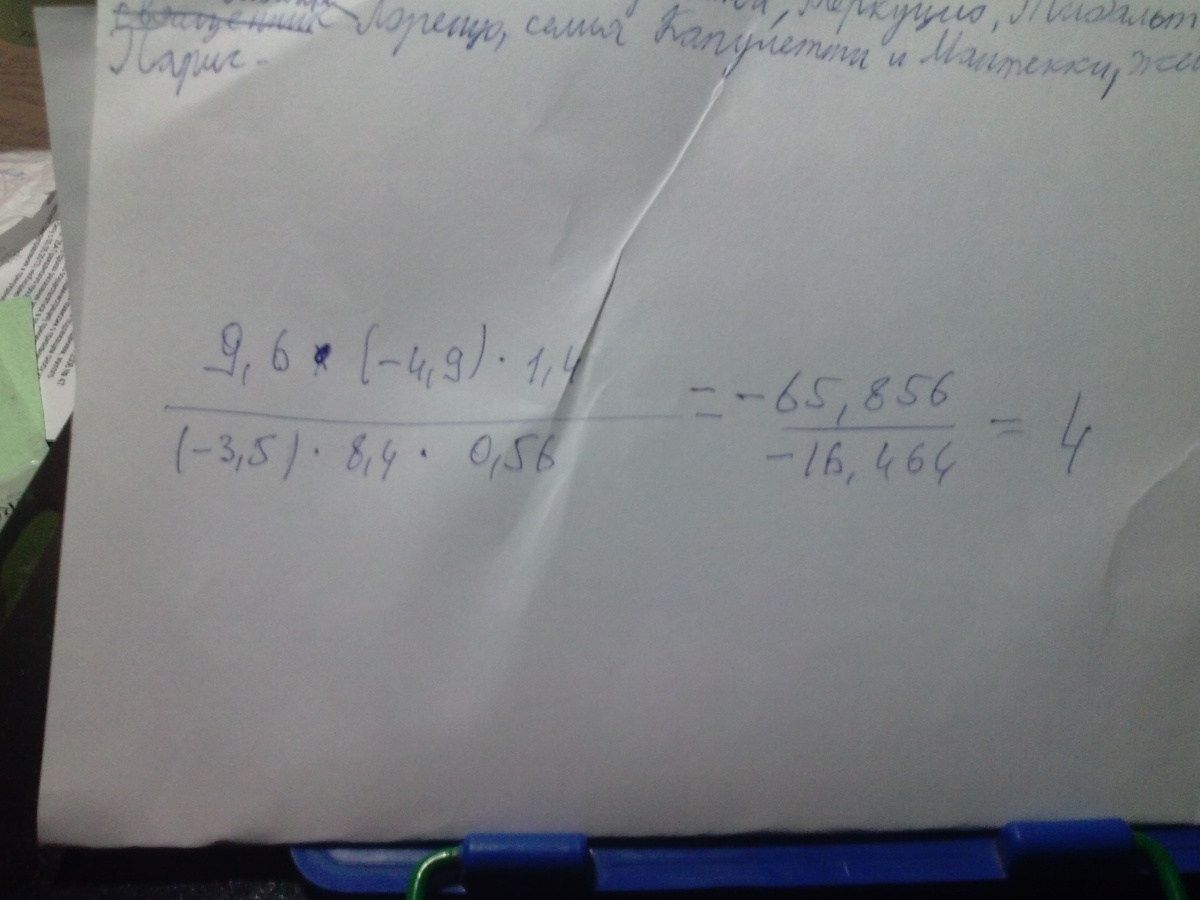 Меркуцио, Тибальт
священник Лоренцо, семья Капулетти и Монтекки,
Парис.
9,6 • (-4,9) · 1,4
(-3,5) · 8,4 · 0,56
= -65,856
-16,464
= 4